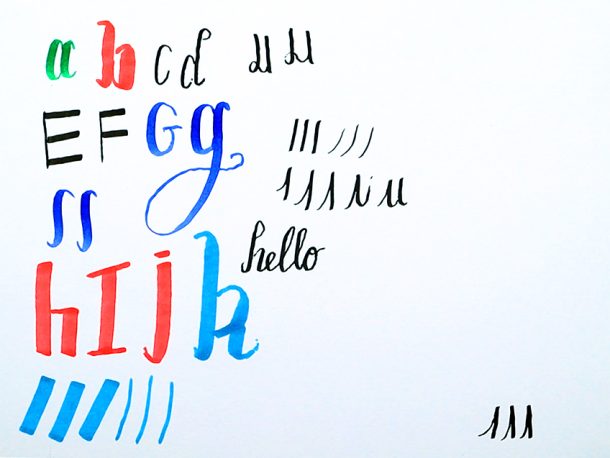 a b c d
E F G g
hello
h I j k